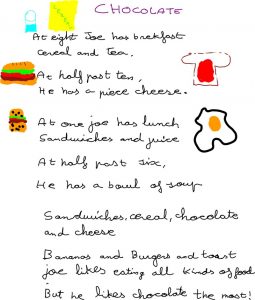 CHOCOLATE
At eight Joe has brekfast
cereal and tea.
At half past ten,
He has a piece cheese.
At one joe has lunch
Sandwiches and juice
At half past six,
He has a bowl of soup
Sandwiches, cereal, chocolate
and cheese
Bananas and Burgers and toast
joe likes eating all kinds of food
But he likes chocolate the most!